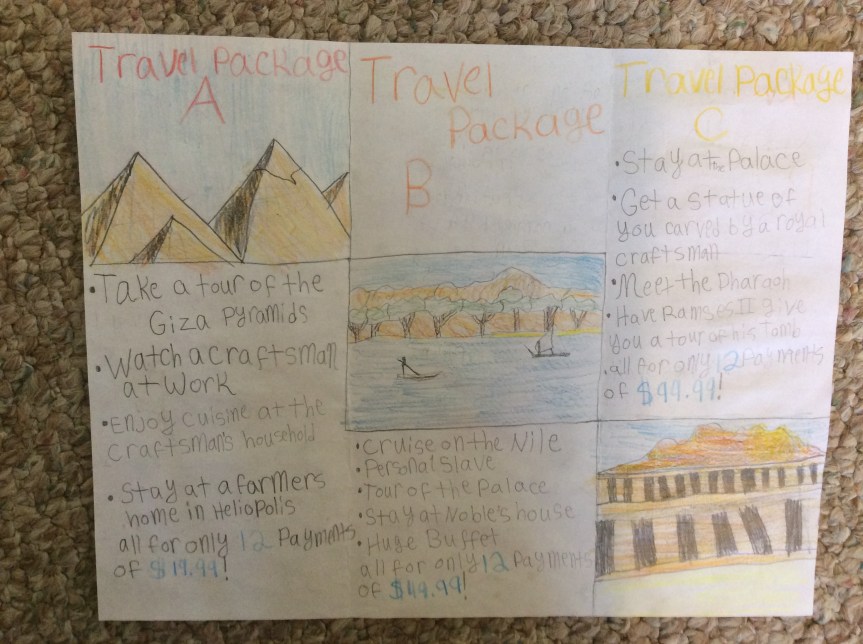 Travel Package
A
• Take a tour of the
Giza Pyramids
• Watch a craftsman
at work
• Enjoy cuisine at the
craftsman's household
• Stay at a farmers
home in Heliopolis
all for only 12 Payments
of $19.99!
Travel
Package
B
• Cruise on the Nile
• Personal Slave
• Tour of the Palace
• Stay at Noble's house
• Huge Buffet
all for only 12 Payments
of $49.99!
Travel Package
C
• Stay at the Palace
• Get a statue of
you carved by a royal
craftsman
• Meet the Pharaoh
• Have Ramses II give
you a tour of his tomb
• all for only 12 Payments
of $99.99!